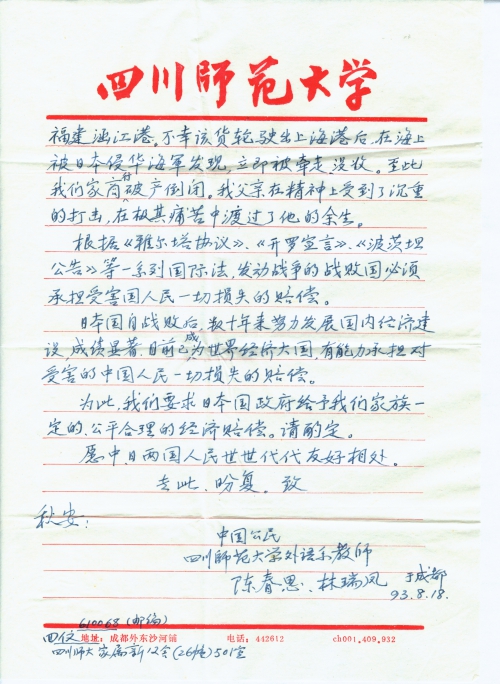 四川師范大学
福建涵江港。不幸该货轮驶出上海港后,在海上
被日本侵华海軍发现,立即被牵走没收。至此
我们家商付破产倒闭。我父亲在精神上受到了沉重
的打击,在极其痛苦中渡过了他的余生。
根据《雅尔塔协议》、《开罗宣言》、《波茨坦
公告》等一系列国际法,发动战争的战败国必须
承担受害国人民一切损失的赔偿。
日本国自战败后,数十年来努力发展国内经济建
设,成绩显著,目前已成为世界经济大国,有能力承担对
受害的中国人民一切损失的赔偿。
为此,我们要求日本国政府给予我们家族一
定的、公平合理的经济赔偿。请酌定。
愿中、日两国人民世世代代友好相处。
专此、盼复。致
秋安:
中国公民
四川师范大学外语系教师
陈春思、林瑞凤 于成都
93.8.18.
610068(邮编)
地址:成都外东沙河铺 电话:442612 ch001.409.932
四川师大家属新12舍(26幢)501室